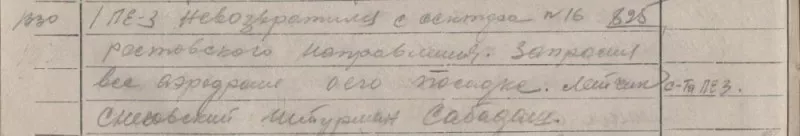 1330 1 ПЕ-3 Невозвратился с сентера №16 825
ростовского направления. Запросил
все аэродроме о его посадке. Летчик с-та ПЕ3.
Снеговский штурман Сабадаш.